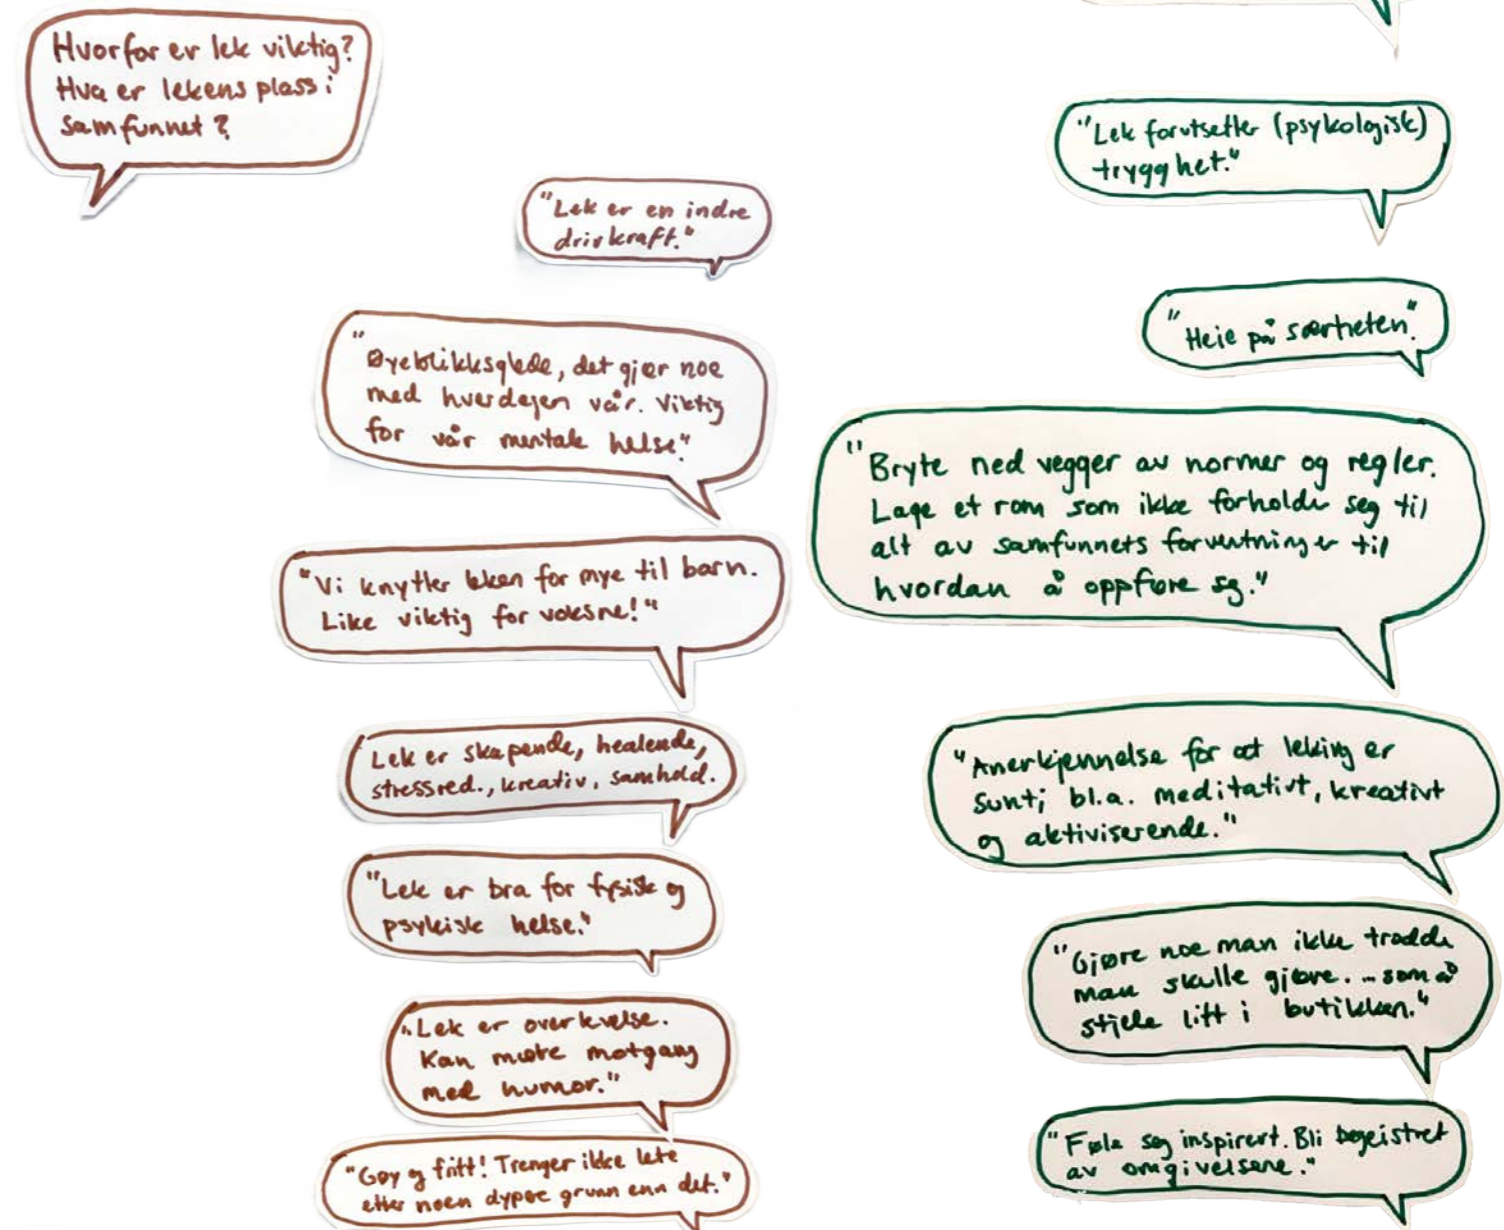 Hvorfor er lek viktig?
Hva er lekens plass i
samfunnet?
"Lek er en indre
drivkraft."
"Øyeblikksglede, det gjør noe
med hverdagen vår. Viktig
for vår mentale helse."
"Vi knytter leken for mye til barn.
Like viktig for voksne!"
Lek er skapende, healende,
stressred., kreativ, samhold.
"Lek er bra for fysisk og
psykisk helse."
"Lek er overlevelse.
Kan møte motgang
med humor."
"Gøy og fritt! Trenger ikke lete
etter noen dypere grunn enn det."
"Lek forutsetter (psykologisk)
trygghet."
"Heie på særheten".
"Bryte ned vegger av normer og regler.
Lage et rom som ikke forholder seg til
alt av samfunnets forventninger til
hvordan å oppføre seg."
"Anerkjennelse for at leking er
sunt; bl.a. meditativt, kreativt
og aktiviserende."
"Gjøre noe man ikke trodde
man skulle gjøre. ... som å
stjele litt i butikken."
"Føle seg inspirert. Bli begeistret
av omgivelsene."